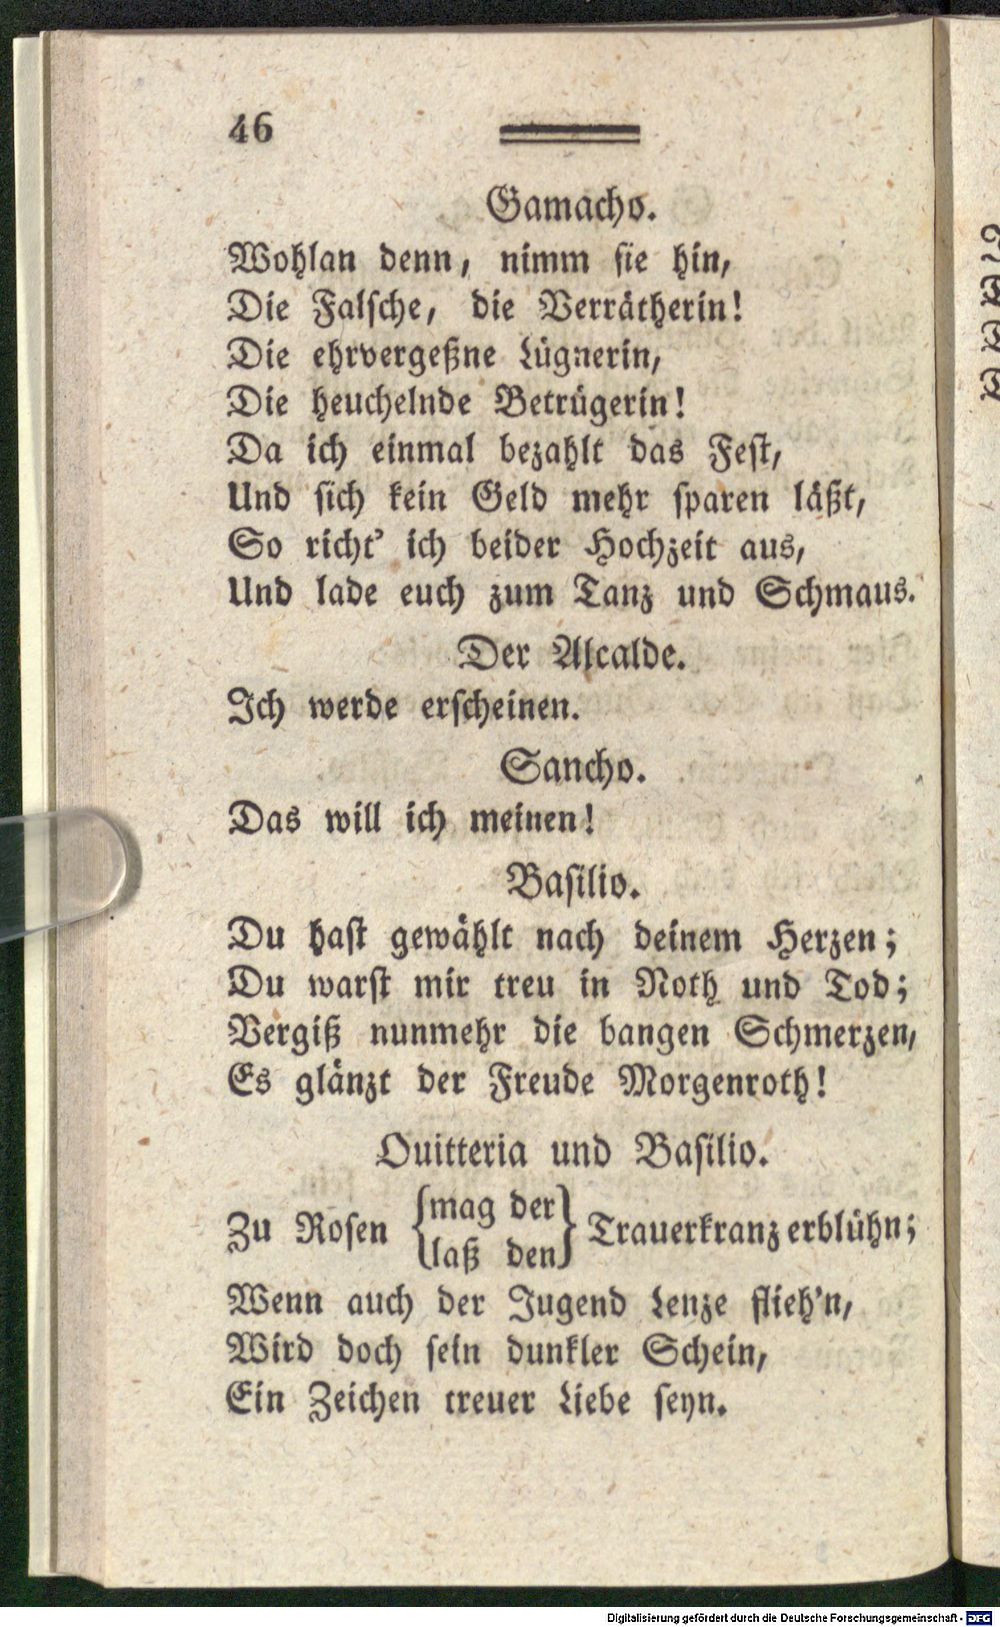 46
Gamacho.
Wohlan denn, nimm sie hin,
Die Falsche, die Verrätherin!
Die ehrvergeßne Lügnerin,
Die heuchelnde Betrügerin!
Da ich einmal bezahlt das Fest,
Und sich kein Geld mehr sparen läßt,
So richt' ich beider Hochzeit aus,
Und lade euch zum Tanz und Schmaus.
Der Alcalde.
Ich werde erscheinen.
Sancho.
Das will ich meinen!
Basilio.
Du hast gewählt nach deinem Herzen;
Du warst mir treu in Noth und Tod;
Vergiß nunmehr die bangen Schmerzen,
Es glänzt der Freude Morgenroth!
Quitteria und Basilio.
Zu Rosen {mag der / laß den} Trauerkranz erblühn;
Wenn auch der Jugend Lenze flieh'n,
Wird doch sein dunkler Schein,
Ein Zeichen treuer Liebe seyn.
Digitalisierung gefördert durch die Deutsche Forschungsgemeinschaft - DFG